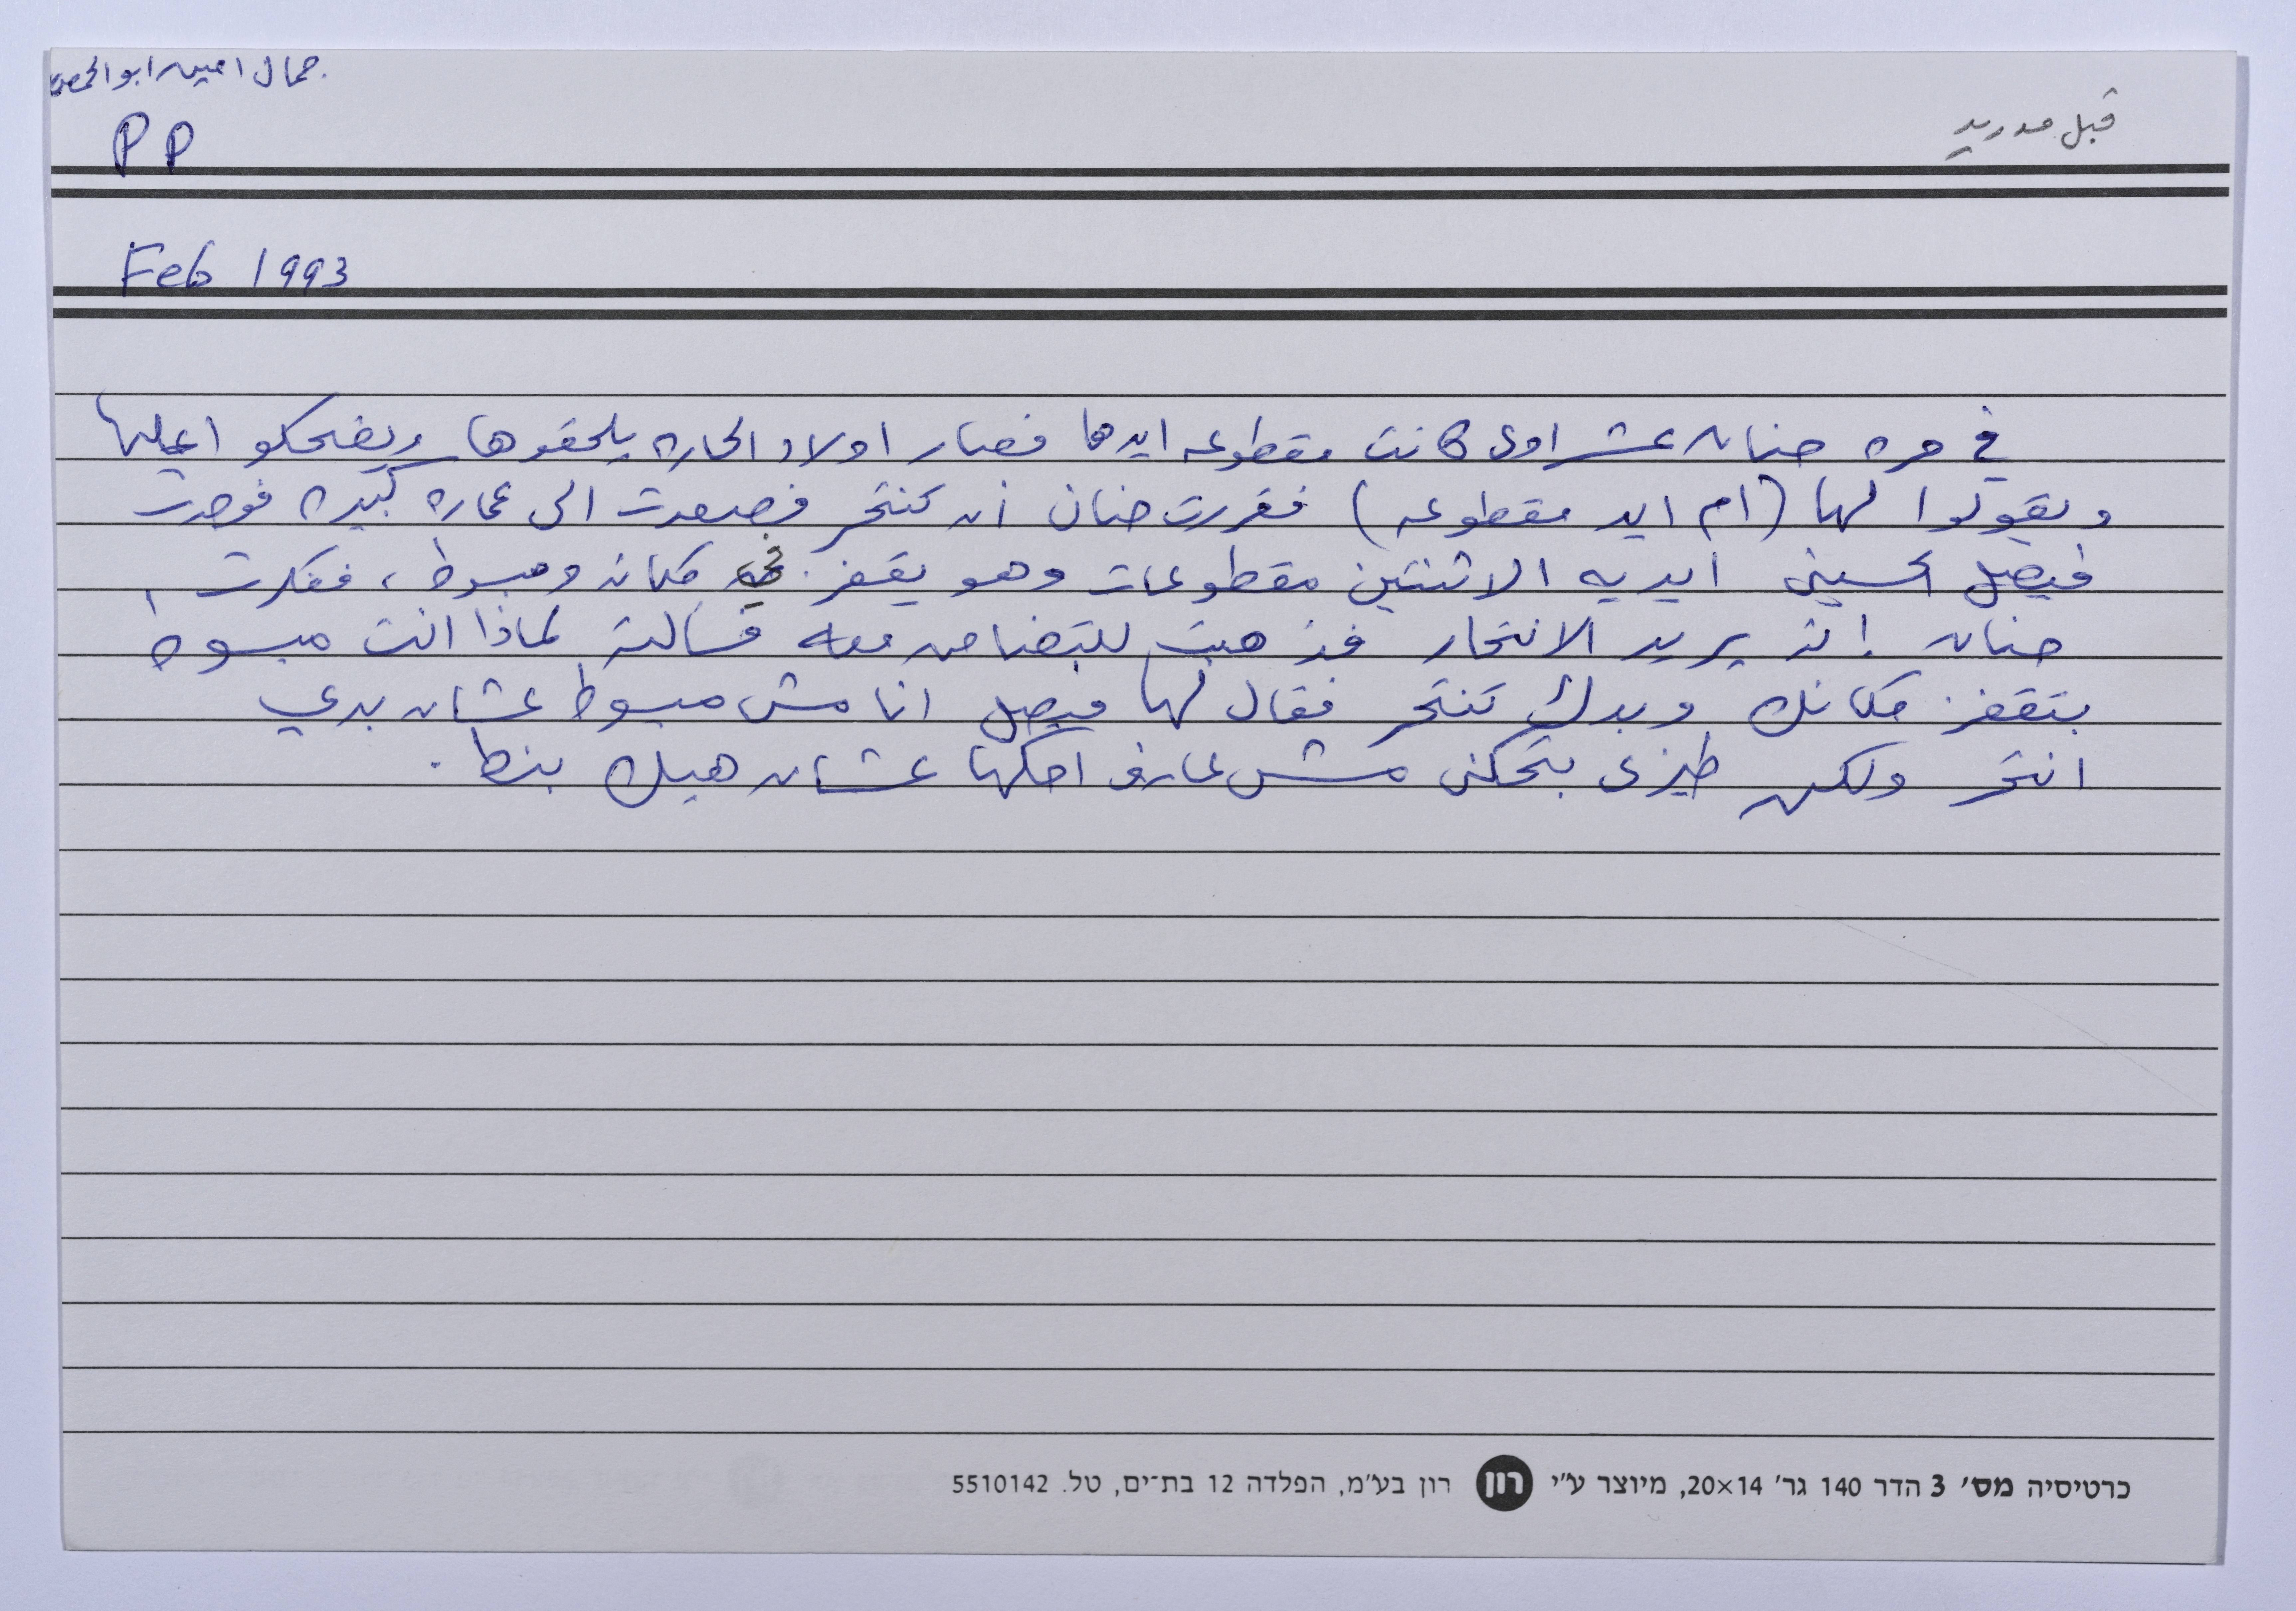 جمال امين ابو الحمص
قبل مدريد
PP
Feb 1993
في مره حنان عشراوى كانت مقطوعه ايدها فصار اولاد الحاره يلحقوها ويضحكو اعليها
ويقولوا لها (ام ايد مقطوعه) فقررت حنان أن تنتحر فصعدت الى عماره كبيره فوجدت
فيصل الحسيني ايديه الاثنتين مقطوعات وهو يقفز في مكانه ومبسوط، ففكرت
حنان انه يريد الانتحار فذهبت للتضامن معه فسالته لماذا انت مبسوط
بتقفز مكانك وبدك تنتحر فقال لها فيصل انا مش مبسوط عشان بدي
انتحر ولكن طيزى بتحكنى مش عارف احكها عشان هيك بنط.
כרטיסיה מס' 3 הדר 140 גר' 20×14, מיוצר ע"י רון רון בע"מ, הפלדה 12 בת-ים, טל. 5510142